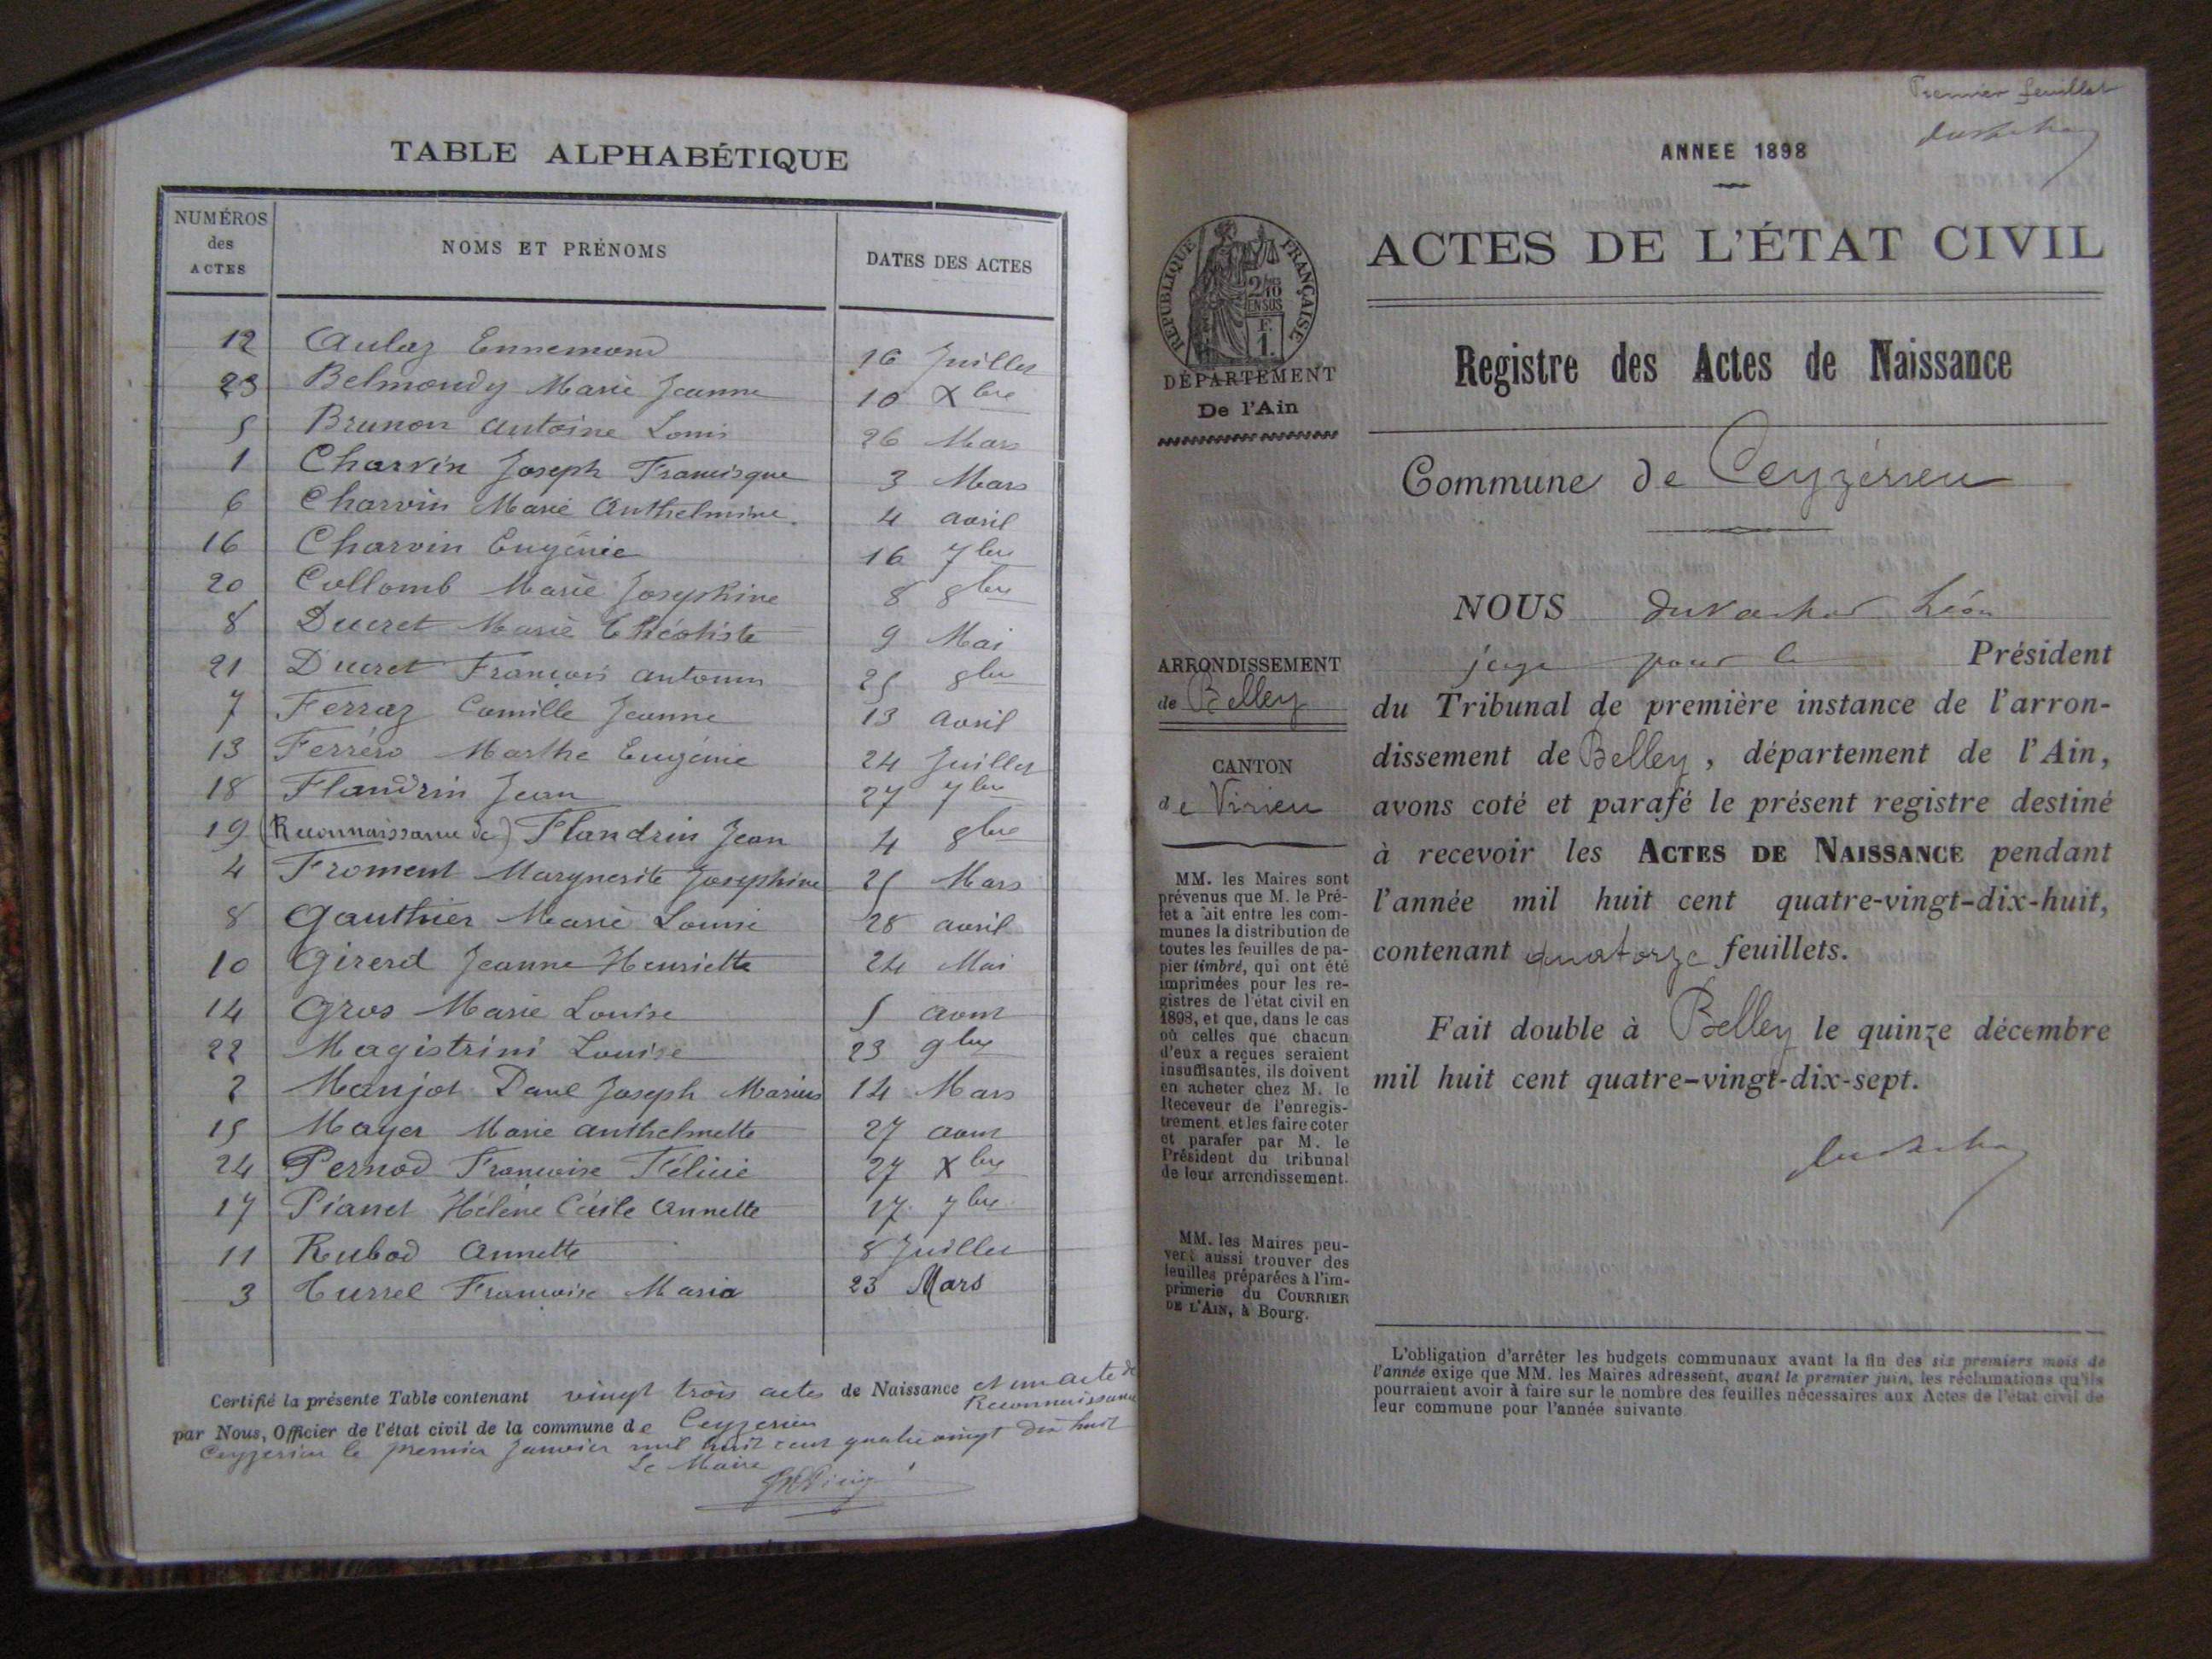 TABLE ALPHABÉTIQUE
NUMÉROS des ACTES NOMS ET PRÉNOMS DATES DES ACTES
12 Aulaz Ennemond 16 Juillet
23 Belmondy Marie Jeanne 10 Xbre
5 Brunon Antoine Louis 26 Mars
1 Charvin Joseph Francisque 3 Mars
6 Charvin Marie Anthelmine 4 avril
16 Charvin Eugénie 16 7bre
20 Collomb Marie Joséphine 8 8bre
8 Ducret Marie Théotiste 9 Mai
21 Ducret François Antonin 25 8bre
7 Ferraz Camille Jeanne 13 avril
13 Ferréro Marthe Eugénie 24 Juillet
18 Flandrin Jean 27 7bre
19 (Reconnaissance de) Flandrin Jean 4 8bre
4 Froment Marguerite Joséphine 25 Mars
8 Gauthier Marie Louise 28 avril
10 Girerd Jeanne Henriette 24 Mai
14 Gros Marie Louise 5 aout
22 Magistrini Louise 23 9bre
2 Manjot Paul Joseph Marius 14 Mars
15 Mayer Marie Anthelmette 27 aout
24 Pernod Françoise Félicie 27 Xbre
17 Pianet Hélène Cécile Annette 17 7bre
11 Rubod Annette 8 Juillet
3 Turrel Françoise Maria 23 Mars
Certifié la présente Table contenant vingt trois actes de Naissance et un acte de
Reconnaissance
par Nous, Officier de l'état civil de la commune de Ceyzerieu
Ceyzerieu le premier Janvier mil huit cent quatre vingt dix huit
Le Maire
Premier feuillet
ANNEE 1898
REPUBLIQUE FRANÇAISE
2/10 EN SUS
F. 1.
ACTES DE L'ÉTAT CIVIL
Registre des Actes de Naissance
DÉPARTEMENT
De l'Ain
Commune de Ceyzérieu
NOUS Léon
juge pour le Président
ARRONDISSEMENT
de Belley
du Tribunal de première instance de l'arron-
dissement de Belley, département de l'Ain,
CANTON
de Virieu
avons coté et parafé le présent registre destiné
à recevoir les ACTES DE NAISSANCE pendant
l'année mil huit cent quatre-vingt-dix-huit,
contenant quatorze feuillets.
Fait double à Belley le quinze décembre
mil huit cent quatre-vingt-dix-sept.
MM. les Maires sont
prévenus que M. le Pré-
fet a fait entre les com-
munes la distribution de
toutes les feuilles de pa-
pier timbré, qui ont été
imprimées pour les re-
gistres de l'état civil en
1898, et que, dans le cas
où celles que chacun
d'eux a reçues seraient
insuffisantes, ils doivent
en acheter chez M. le
Receveur de l'enregis-
trement et les faire coter
et parafer par M. le
Président du tribunal
de leur arrondissement.
MM. les Maires peu-
vent aussi trouver des
feuilles préparées à l'im-
primerie du COURRIER
DE L'AIN, à Bourg.
L'obligation d'arrêter les budgets communaux avant la fin des six premiers mois de
l'année exige que MM. les Maires adressent, avant le premier juin, les réclamations qu'ils
pourraient avoir à faire sur le nombre des feuilles nécessaires aux Actes de l'état civil de
leur commune pour l'année suivante